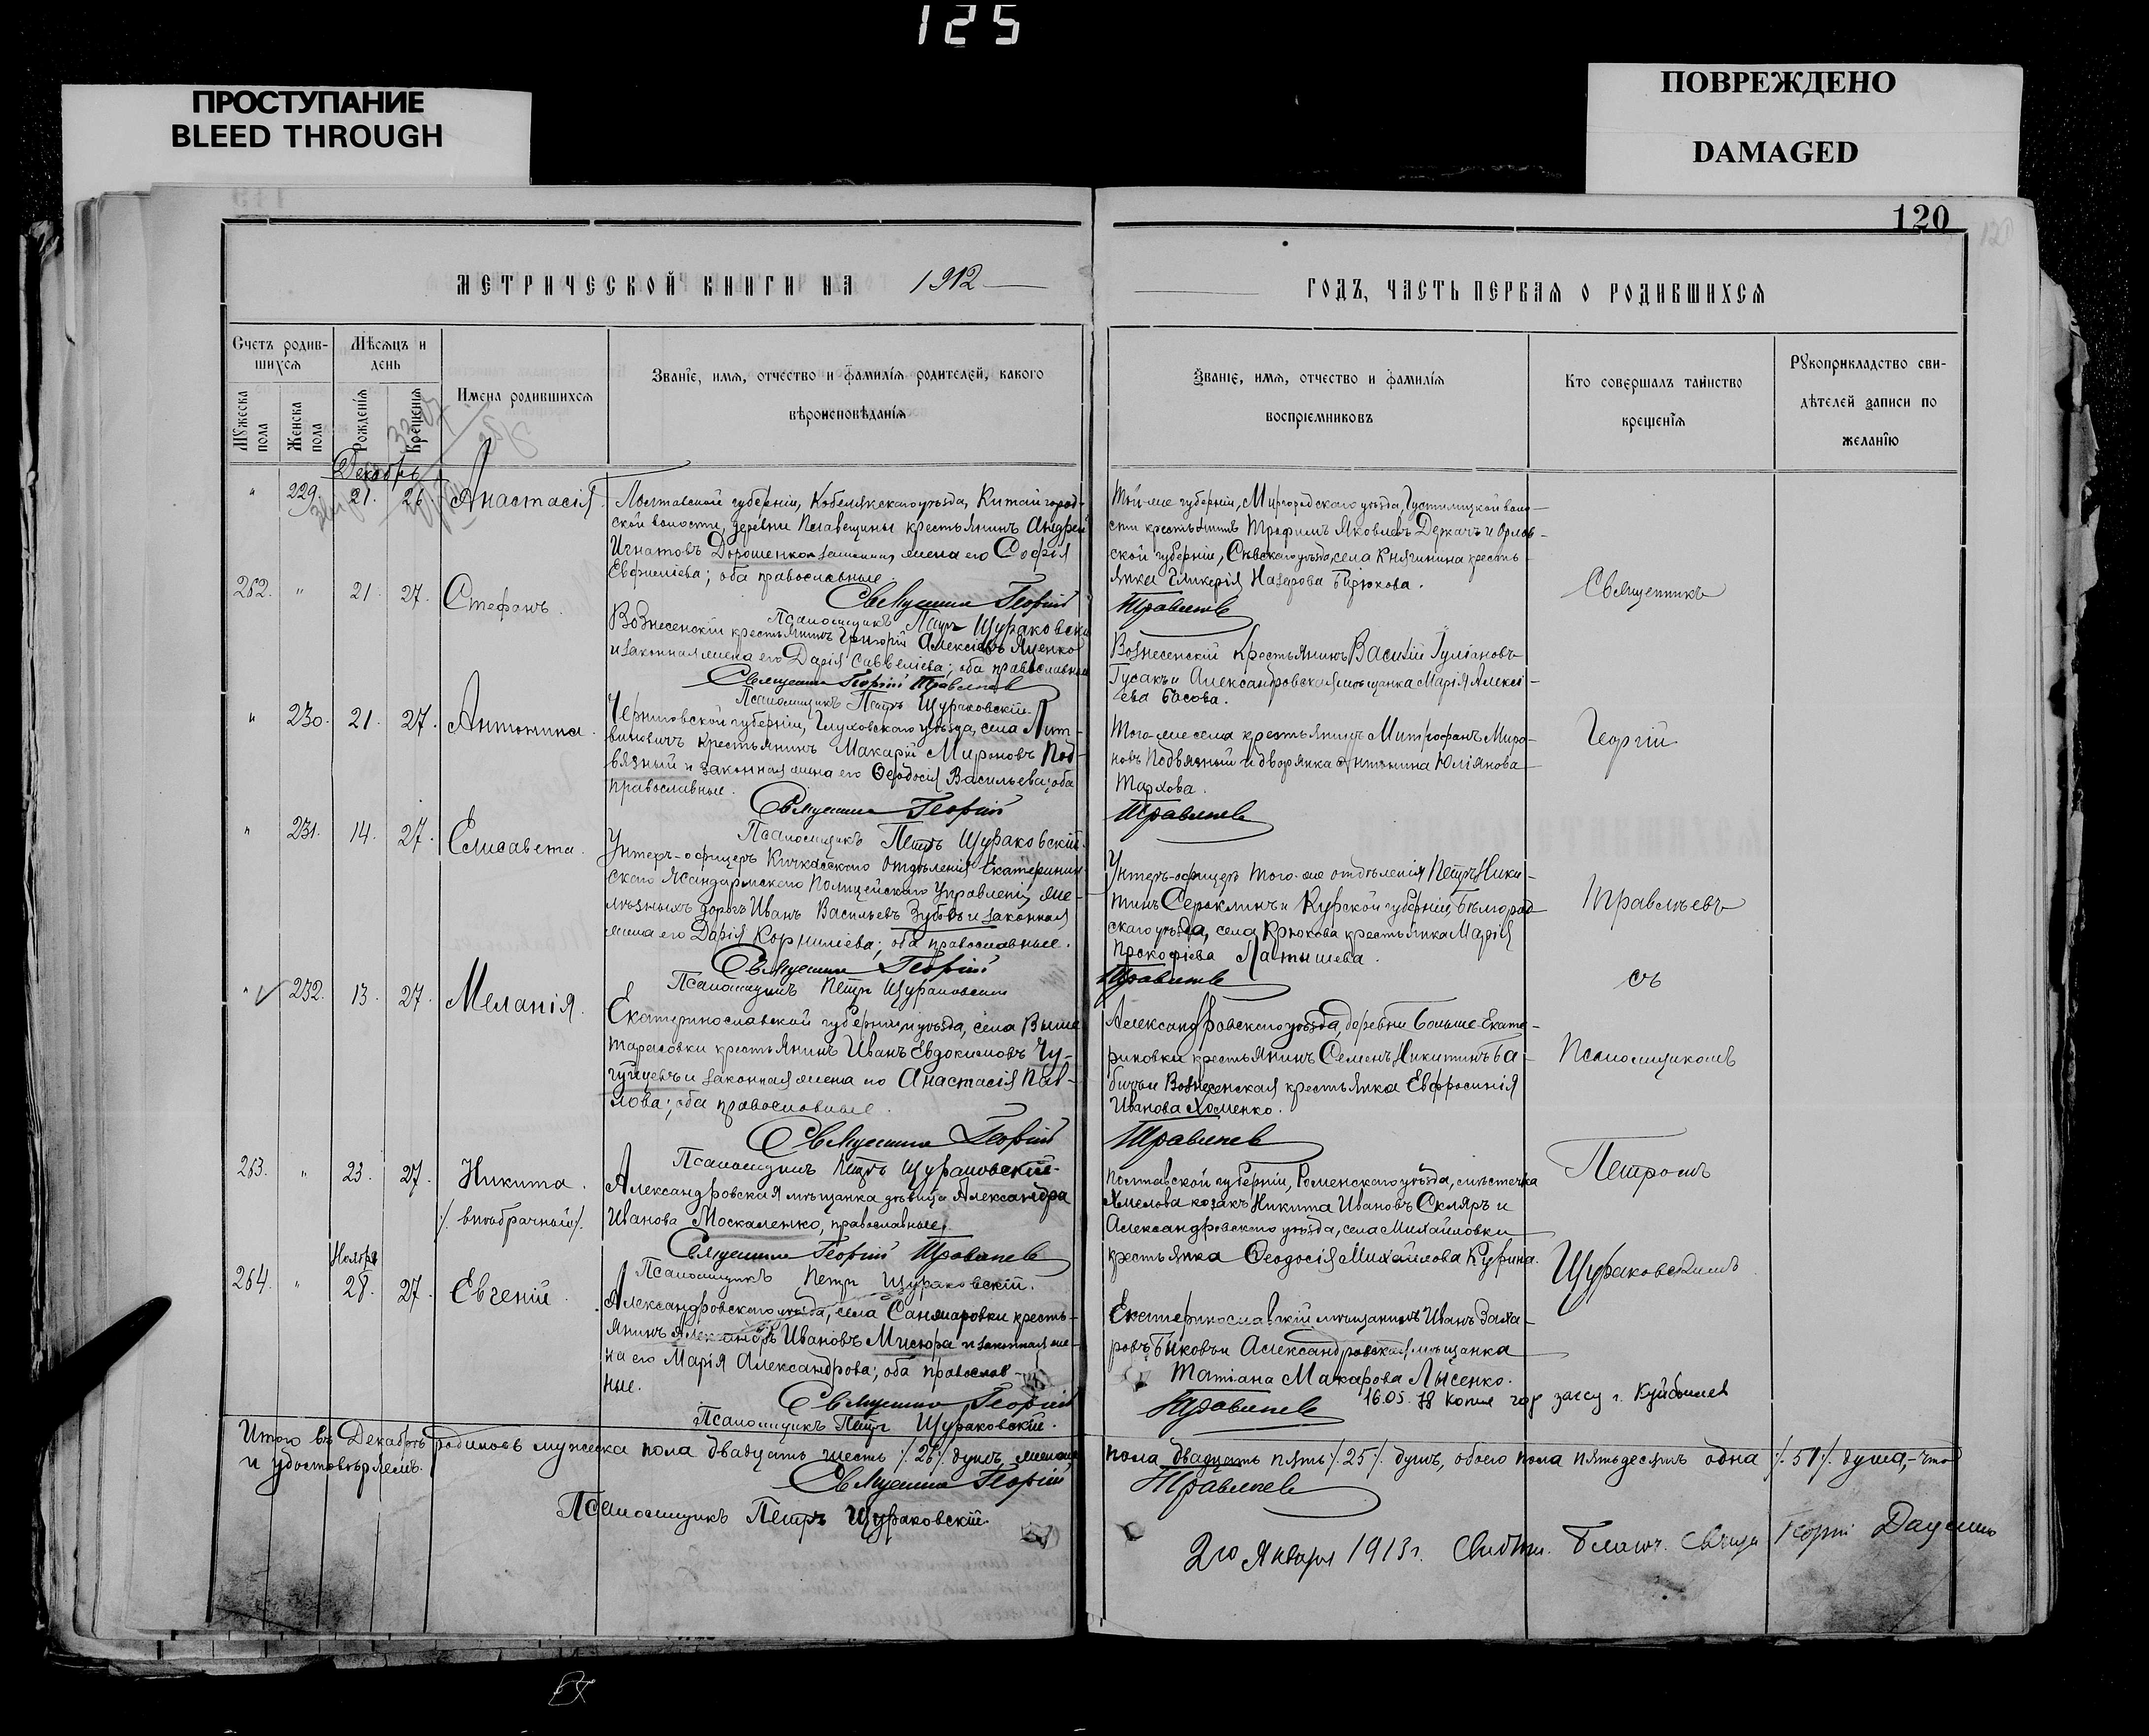 125
ПРОСТУПАНИЕ
BLEED THROUGH
ПОВРЕЖДЕНО
DAMAGED
120
МЕТРИЧЕСКОЙ КНИГИ НА 1912
ГОДЪ, ЧАСТЬ ПЕРВАЯ О РОДИВШИХСЯ
Счетъ родив-
шихся
Мужеска пола
Женска пола
Мѣсяцъ и
день
Рожденія
Крещенія
Имена родившихся
Званіе, имя, отчество и фамилія родителей, какого
вѣроисповѣданія
Званіе, имя, отчество и фамилія
воспріемниковъ
Кто совершалъ таинство
крещенія
Рукоприкладство сви-
дѣтелей записи по
желанію
Декабрь
" 229. 21. 26. Анастасія.
Полтавской губерніи, Кобелякскаго уѣзда, Китайгород-
ской волости, деревни крестьянинъ Андрей
Игнатовъ Дорошенко и законная жена его Софія
Евфиміева; оба православные.
Священникъ Георгій Травлѣевъ
Псаломщикъ Петръ Щураковскій
Той-же губерніи, Миргородскаго уѣзда, воло-
сти крестьянинъ Трофимъ Яковлевъ Держачъ и Орлов-
ской губерніи, Сѣвскаго уѣзда, села Княгинина кресть-
янка Гликерія Назарова Бирюкова.
262. " 21. 27. Стефанъ.
Вознесенскій крестьянинъ Григорій Алексіевъ Яценко
и законная жена его Дарія Саввеліева; оба православные
Священникъ Георгій Травлѣевъ
Псаломщикъ Петръ Щураковскій.
Вознесенскій крестьянинъ Василій Іуліановъ
Гусакъ и Александровская мѣщанка Марія Алексі-
ева Басова.
" 230. 21. 27. Антонина.
Черниговской губерніи, Глуховскаго уѣзда, села Лит-
виновичъ крестьянинъ Макарій Мироновъ Под-
вязный и законная жена его Ѳеодосія Васильева; оба
православные.
Священникъ Георгій Травлѣевъ
Псаломщикъ Петръ Щураковскій.
Того-же села крестьянинъ Митрофанъ Миро-
новъ Подвязный и дворянка Антонина Юліянова
Тархова.
" 231. 14. 27. Елисавета.
Унтеръ-офицеръ Кичкасскаго отдѣленія Екатеринин-
скаго Жандармскаго Полицейскаго Управленія же-
лѣзныхъ дорогъ Иванъ Васильевъ Зубовъ и законная
жена его Дарія Корниліева; оба православные.
Священникъ Георгій Травлѣевъ
Псаломщикъ Петръ Щураковскій
Унтеръ-офицеръ того-же отдѣленія Петръ Ники-
тинъ Сероклинъ и Курской губерніи, Бѣлгород-
скаго уѣзда, села Крюкова крестьянка Марія
Прокофіева Латышева.
" 232. 13. 27. Меланія.
Екатеринославской губерніи и уѣзда, села Выше
тарасовки крестьянинъ Иванъ Евдокимовъ Чу-
и законная жена его Анастасія Пав-
лова; оба православные.
Священникъ Георгій Травлѣевъ
Псаломщикъ Петръ Щураковскій.
Александровскаго уѣзда, деревни Больше-Екате-
риновки крестьянинъ Семенъ Никитинъ Ба-
бичъ и Вознесенская крестьянка Евфросинія
Иванова Хоменко.
263. " 23. 27. Никита.
/. внѣбрачный /.
Александровская мѣщанка дѣвица Александра
Иванова Москаленко, православные.
Священникъ Георгій Травлѣевъ
Псаломщикъ Петръ Щураковскій.
Полтавской губерніи, Роменскаго уѣзда, мѣстечка
Хмелова козакъ Никита Ивановъ Скляръ и
Александровскаго уѣзда, села Михайловки
крестьянка Ѳеодосія Михайлова Курина.
Ноября
264. " 28. 27. Евгеній.
Александровскаго уѣзда, села Санжаровки кресть-
янинъ Александръ Ивановъ Мисюра и законная же-
на его Марія Александрова; оба православ-
ные.
Священникъ Георгій Травлѣевъ
Псаломщикъ Петръ Щураковскій.
Екатеринославскій мѣщанинъ Иванъ Заха-
ровъ Быковъ и Александровская мѣщанка
Татіана Макарова Лысенко.
16.05.78 копия гор загсу г. Куйбышев
Священникъ
Георгій
Травлѣевъ
съ
Псаломщикомъ
Петромъ
Щураковскимъ
Итого въ Декабрѣ родилось мужеска пола двадцать шесть /.26/. душъ, женска пола двадцать пять /.25/. душъ, обоего пола пятьдесятъ одна /.51/. душа,- что
и удостовѣряемъ.
Священникъ Георгій Травлѣевъ
Псаломщикъ Петръ Щураковскій.
2го Января 1913 г.